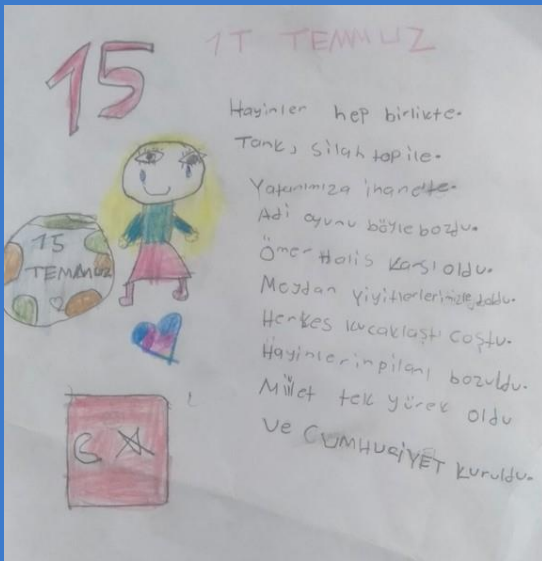 15
1T TEMMUZ
Hayinler hep birlikte.
Tank, silah top ile.
Vatanımıza ihanette.
Adi oyunu böyle bozdu.
Ömer Halis karşı oldu.
Meydan yiyitlerlerimizle doldu.
Herkes kucaklaştı coştu.
Hayinlerin pilanı bozuldu.
Millet tek yürek oldu
ve CUMHURİYET kuruldu.
15
TEMMUZ